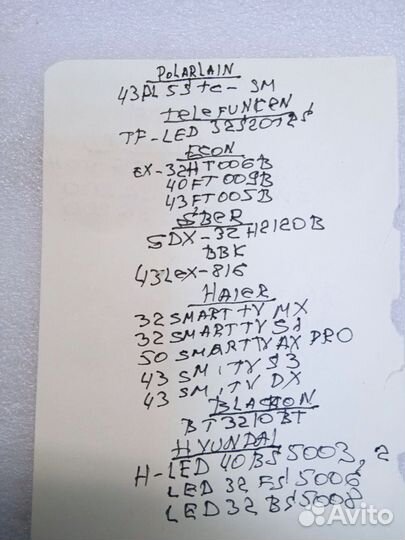 POLARLAIN
43PL55TC-SM
TELEFUNCEN
TF-LED 32S2012S
ECON
EX-32HT006B
40FT009B
43FT005B
SBER
SDX-32H2120B
BBK
43Lex-816
HAIER
32 SMART TV MX
32 SMART TV S1
50 SMART TV AX PRO
43 SM, TV S3
43 SM, TV DX
BLACKON
BT3210BT
HYUNDAI
H-LED 40BS5003, 2
LED 32 FS5006
LED 32 BS5008
Avito